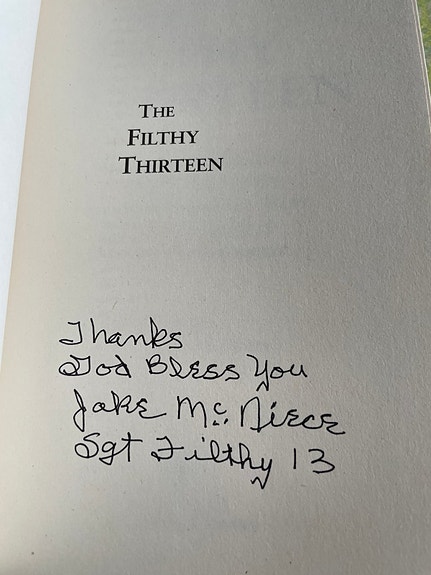 THE
FILTHY
THIRTEEN
Thanks
God Bless You
Jake McNiece
Sgt Filthy 13